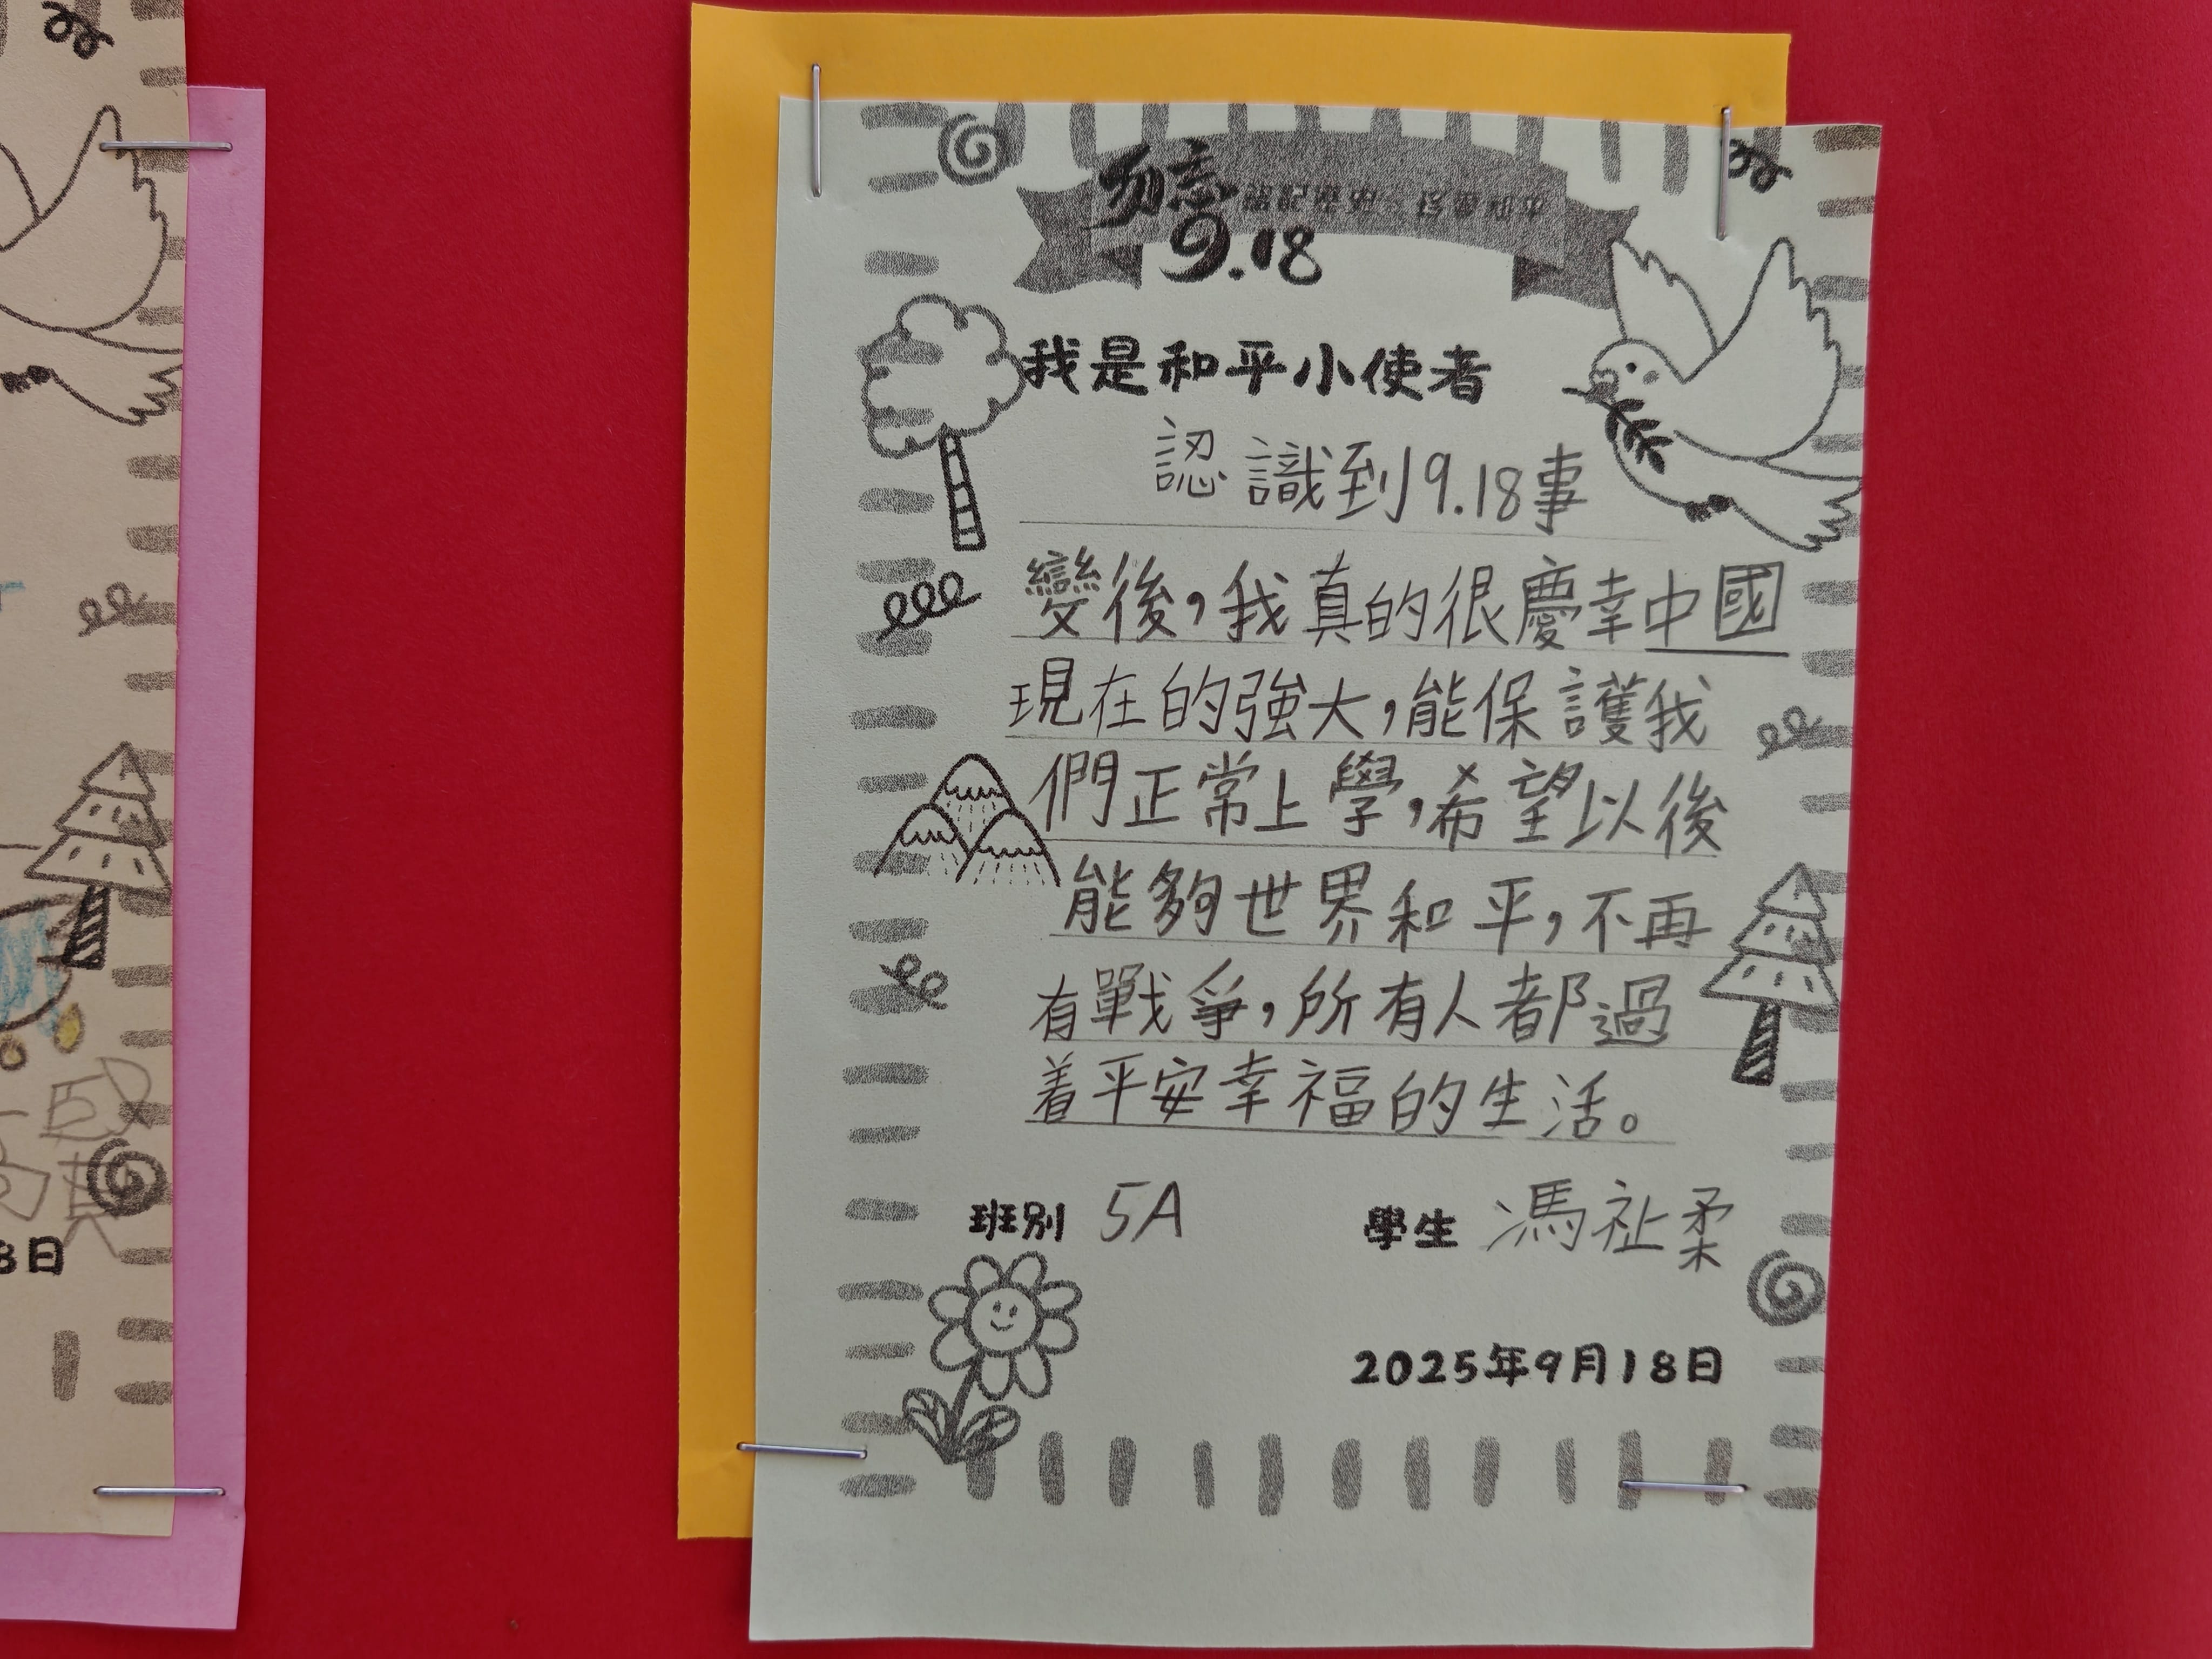 勿忘
9.18
我是和平小使者
認識到9.18事
變後，我真的很慶幸中國
現在的強大，能保護我
們正常上學，希望以後
能夠世界和平，不再
有戰爭，所有人都過
着平安幸福的生活。
班別 5A 學生 馮祉柔
2025年9月18日
8日